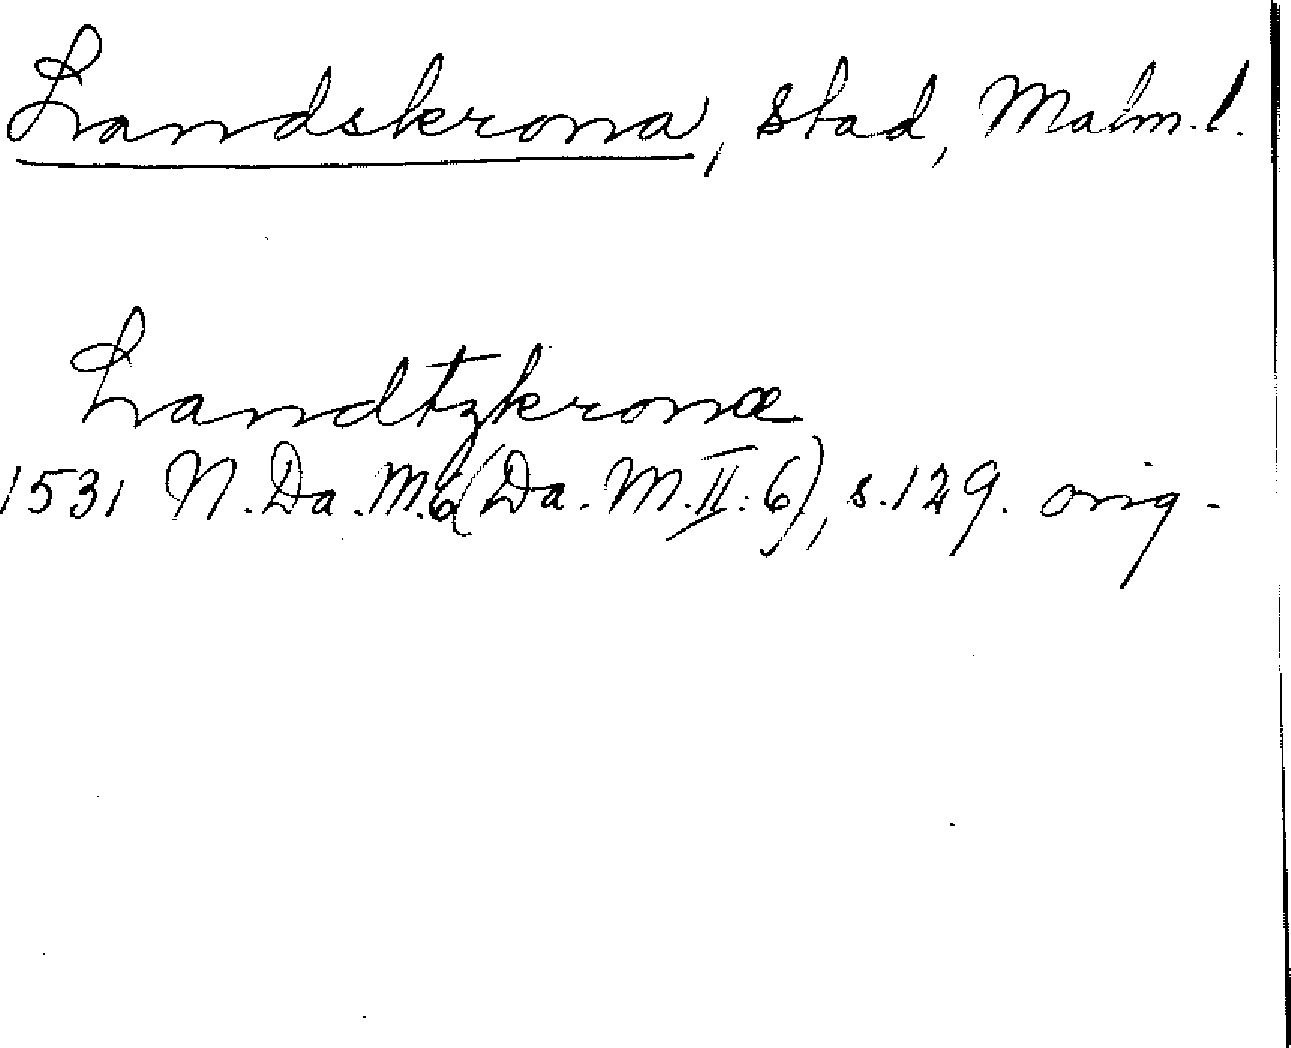 Landskrona, stad, Malm. l.
Landtzkronæ
1531 N. Da. M. 6 (Da. M. II: 6), s. 129. orig.